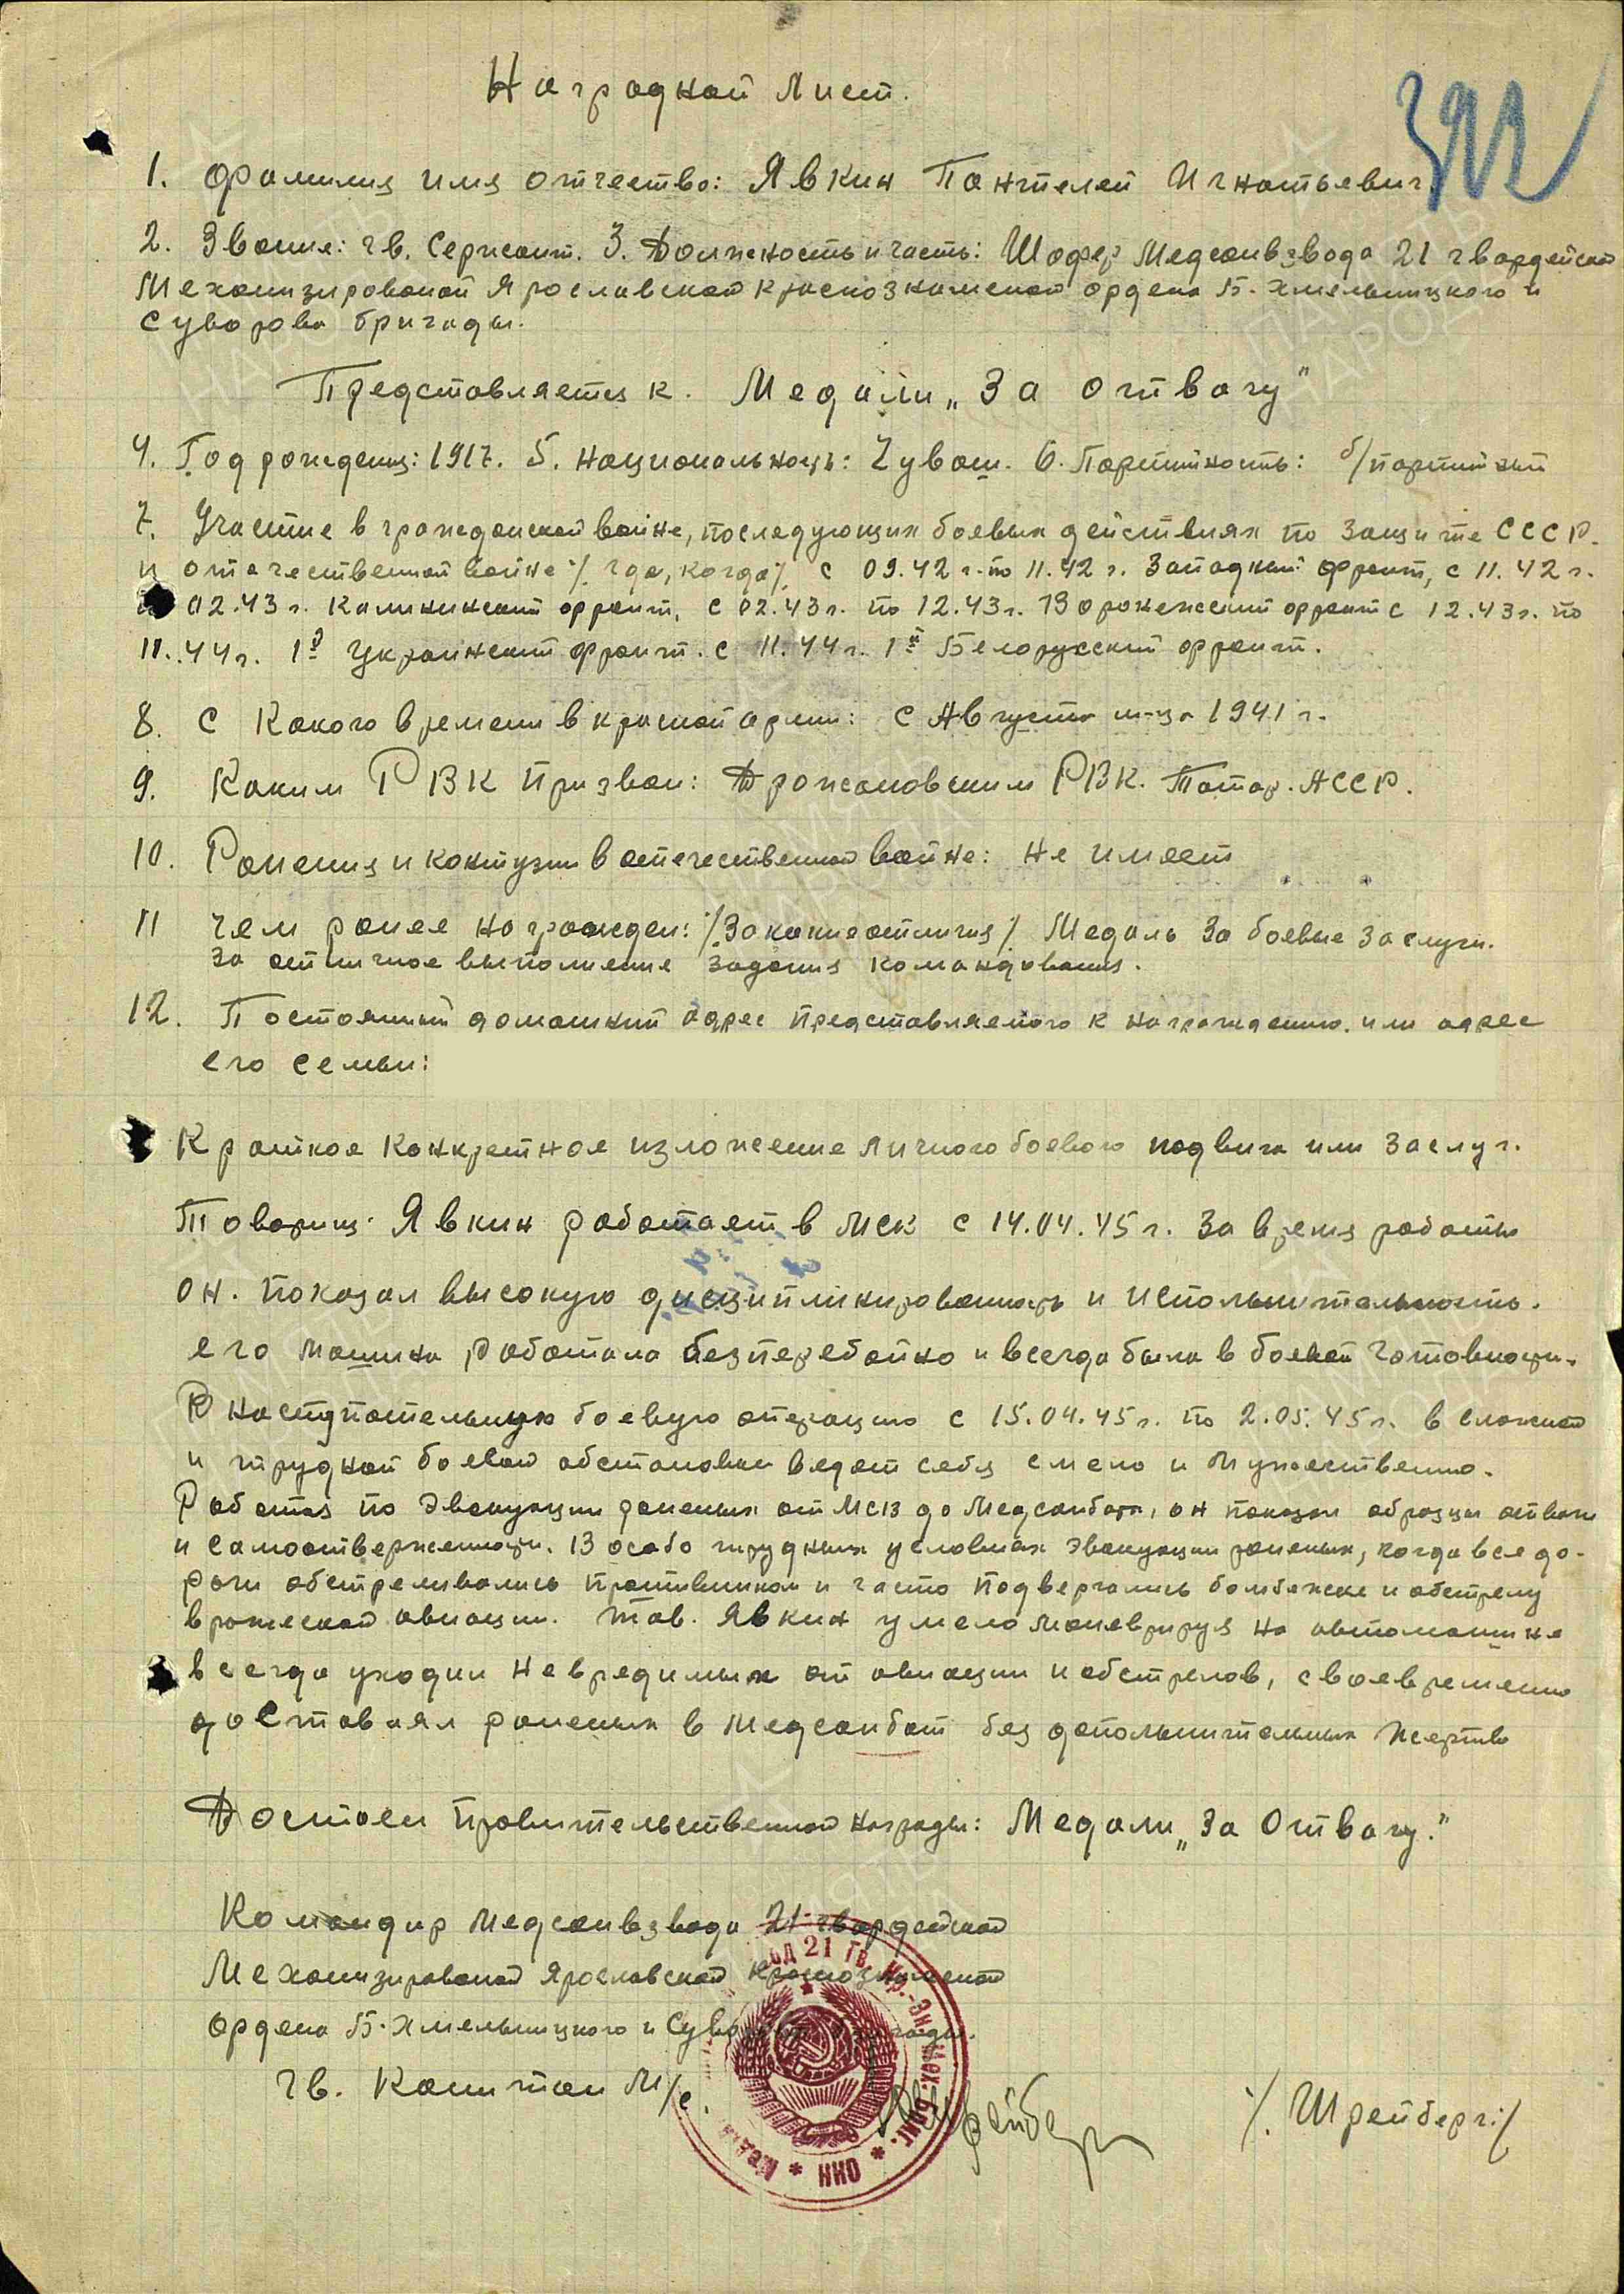 Наградной лист.
392
1. Фамилия имя отчество: Явкин Пантелей Игнатьевич
2. Звание: гв. Сержант. 3. Должность и часть: Шофер Медсанвзвода 21 гвардейской
Механизированой Ярославской краснознаменой ордена Б. Хмельницкого и
Суворова бригады.
Представляется к. Медали „За отвагу"
4. Год рождения: 1917. 5. национальность: Чуваш. 6. Партийность: б/партийный
7. Участие в гражданской войне, последующих боевых действиях по защите СССР.
и отечественной войне /. где, когда/. с 09.42 г. по 11.42 г. Западный фронт, с 11.42 г.
02.43 г. Калининский фронт, с 02.43г. по 12.43г. Воронежский фронт с 12.43г. по
11.44г. 1й Украинский фронт. с 11.44г. 1й Белорусский фронт.
8. С Какого времени в красной армии: с Августа м-ца 1941 г.
9. Каким РВК Призван: Дрожановским РВК. Татар. АССР.
10. Ранения и контузии в отечественной войне: не имеет
11 чем ранее награжден: /За какие отличия/ Медаль За боевые заслуги.
за отличное выполнение задания командования.
12. Постоянный домашний адрес представляемого к награждению. или адрес
его семьи:
Краткое конкретное изложение личного боевого подвига или заслуг.
Товарищ Явкин работает в МСВ с 14.04.45 г. За время работы
он. показал высокую дисциплинированность и исполнительность.
его машина работала безперебойно и всегда была в боевой готовности.
В наступательную боевую операцию с 15.04.45г. по 2.05.45г. в сложной
и трудной боевой обстановке ведет себя смело и мужественно.
Работая по эвакуации раненых от МСВ до Медсанбата, он показал образцы отваги
и самоотверженности. В особо трудных условиях эвакуации раненых, когда все до-
роги обстреливались противником и часто подвергались бомбежке и обстрелу
вражеской авиации. тов. Явкин умело маневрируя на автомашине
всегда уходил невредимым от авиации и обстрелов, своевременно
доставлял раненых в медсанбат без дополнительных жертв
Достоен правительственной награды: Медали „За Отвагу."
Командир Медсанвзвода 21 гвардейской
Механизированой Ярославской краснознаменой
ордена Б. Хмельницкого и Суворова бригады.
гв. Капитан М/с.
/. Шрейберг./
21 Гв. Кр.-Зн. Мех. Бриг. * ПНКО *